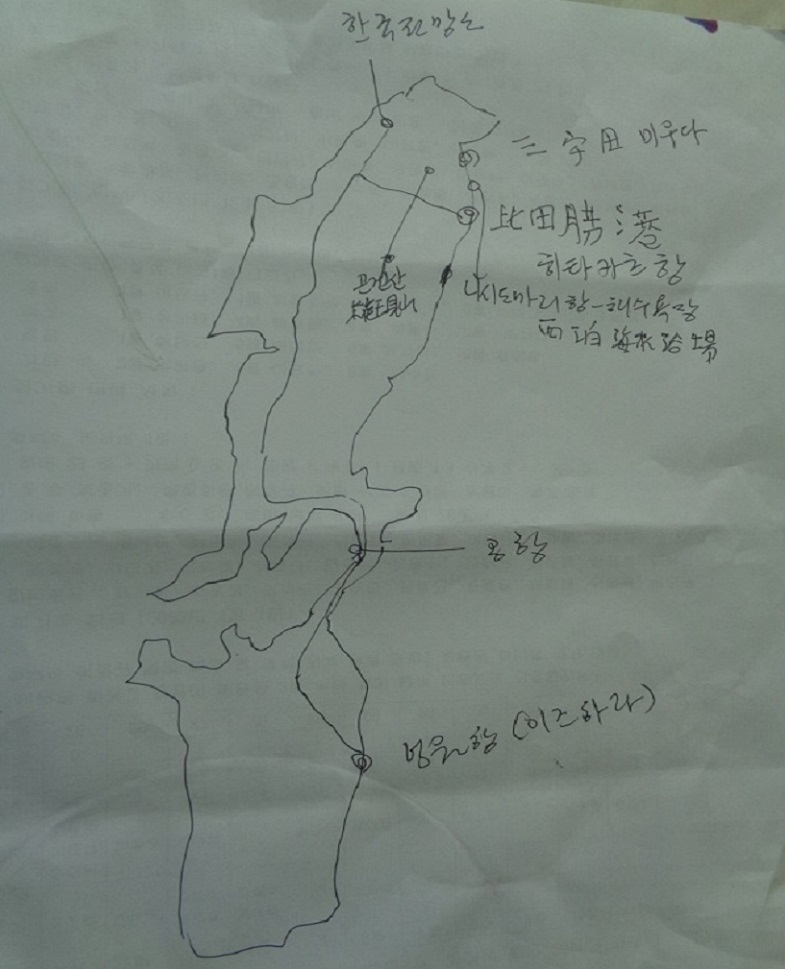 한국전망소
三宇田 미우다
比田勝港
히타카츠항
니시도마리항-해수욕장
西泊海水浴場
공항
(이즈하라)